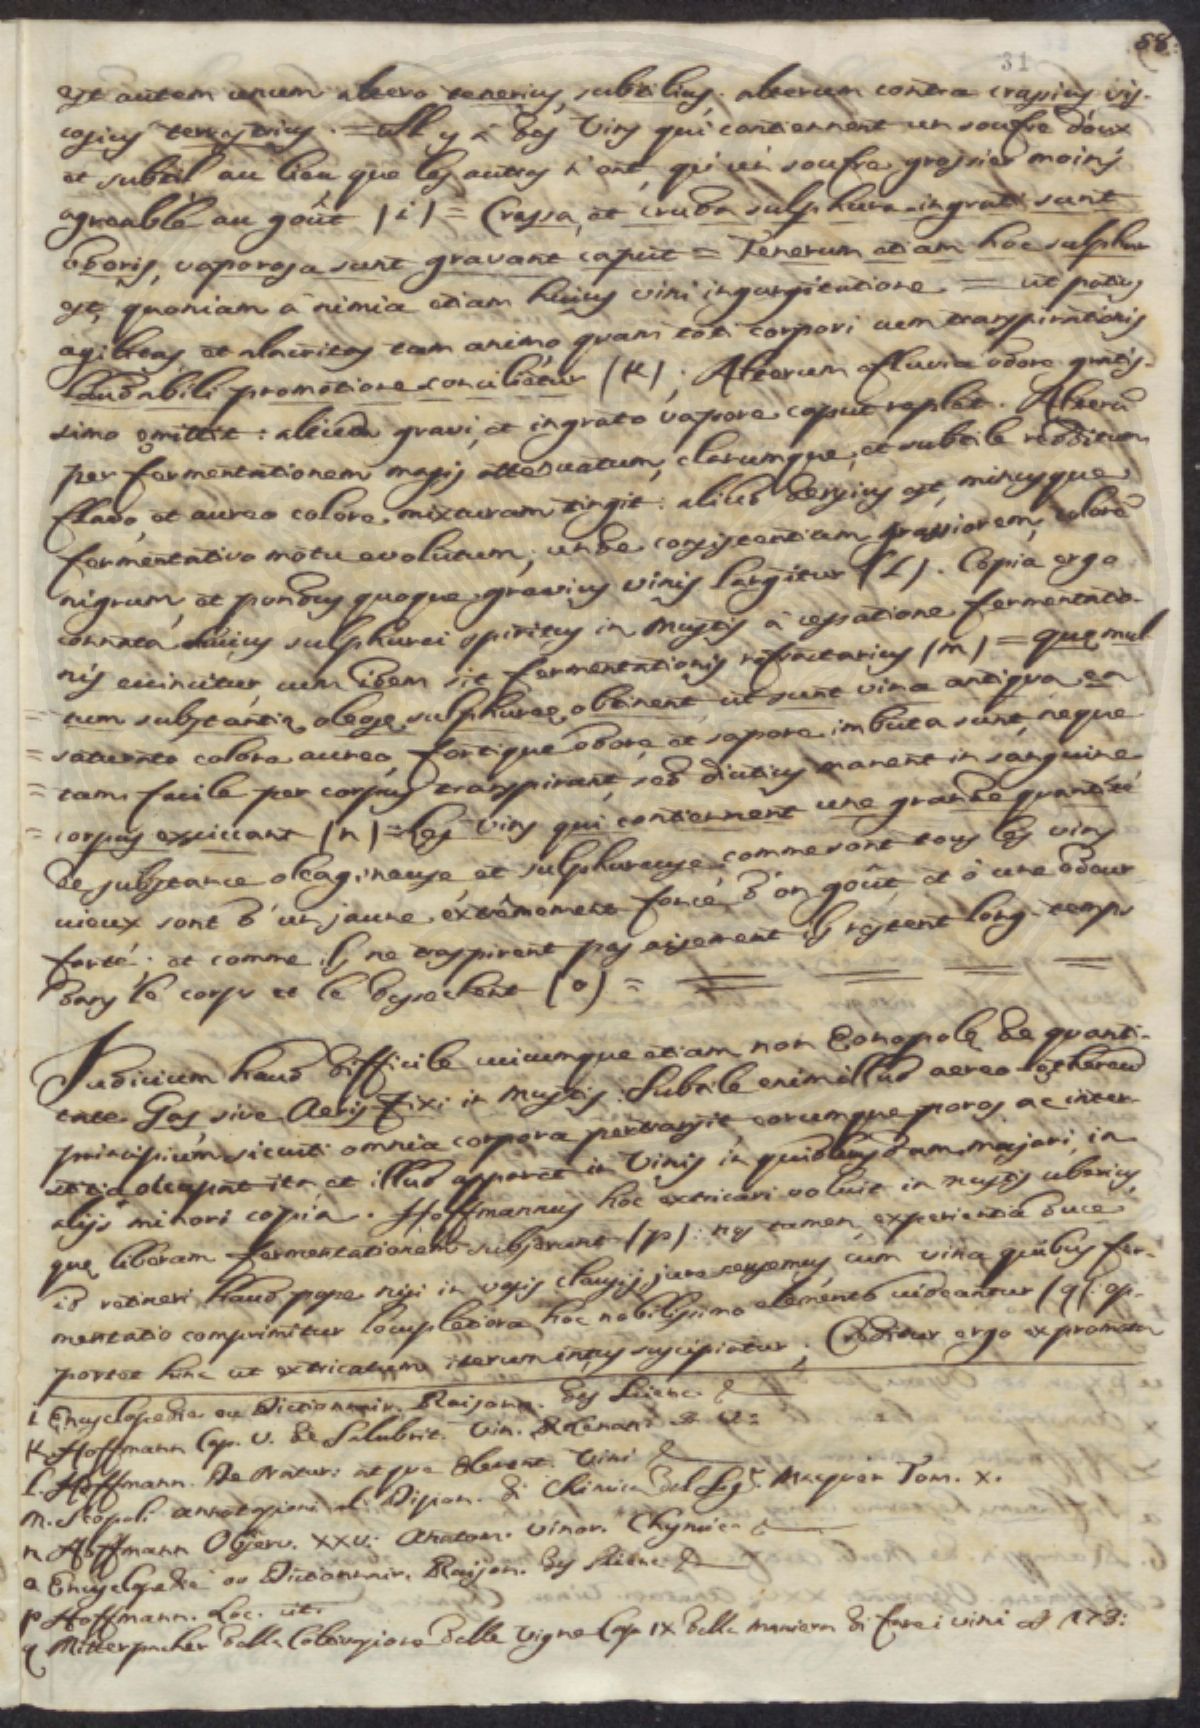 31
est autem unum altero tenerius, subtilius. alterum contra crassius vis-
cosius terrestrius. = Il y à des Vins qui contiennent un soufre doux
et subtil au lieu que les autres n'ont, qu'un soufre grossier moins
agreable au goût (i) = Crassa, et cruda sulphura ingrati sunt
odoris, vaporosa sunt gravant caput = Tenerum etiam hoc sulphur
est, quoniam à nimia etiam huius vini ingurgitatione = ut potius
agilitas, et alacritas tam animo quam toti corpori cum transpirationis
laudabili promotione concilietur (K); Alterum effluvia odore gratis-
simo emittit: aliud gravi, et ingrato vapore caput replet. Alterū
per fermentationem magis attenuatum, clarumque, et subtile redditum
flavo, et aureo colore mixturam tingit: aliud densius est, minusque
fermentativo motu evolutum; unde consistentiam crassiorem, colorē
nigrum, et pondus quoque gravius vinis largitur (L). Copia ergo
connata huius sulphurei spiritus in Mustis à cessatione fermentatio-
nis evincitur, cum idem sit fermentationis refractarius (m) = quę mul
= tum substantię oleosę sulphureę obtinent, ut sunt vina antiqua, ea
= saturato colore aureo, fortique odore, et sapore imbuta sunt, neque
= tam facile per corpus transpirant, sed diutius manent in sanguine
= corpus exsiccant (n) = Les Vins qui contiennent une grande quantité
de substance oleagineuse, et sulphureuse comme sont tous les vins
vieux sont d'un jaune extrêmement foncé, d'on goût et d'une odeur
forte; et comme ils ne traspirent pas aisement ils restent long-temps
dans le corps et le dessechent (o) =
Judicium haud difficile cuicumque etiam non Œonopolę de quanti-
tate Gas sive Aeris Fixi in Mustis. Subtile enim illud aereo-ethereū
principium sicuti omnia corpora pertransit eorumque poros ac inter-
stitia occupat ita et illud apparet in Vinis in quibusdam majori, in
alijs minori copia. Hoffmannus hoc extricari voluit in mustis uberius,
quę liberam fermentationem subierunt (p): nos tamen experientiâ duce
id retineri haud posse nisi in vasis clausis, jure censemus, cum vina quibus fer-
mentatio comprimitur locupletiora hoc nobilissimo elemento videantur (q): op-
portet hinc ut extricatum iterum intus suscipiatur; Creditur ergo expromtum
i Encyclopedie ou Dictionnair. Raison. des Scienc. &
K Hoffmann Cap. V. de Salubrit. Vin. Rhenani
L. Hoffmann. De Natur: atque Element. Vini &
m. Scopoli annotazioni al Dizion. di Chimica del Sigr. Macquer Tom. X.
n Hoffmann Observ. XXV. Anatom. Vinor. Chymic. &
o Encyclopedie ou Dictionnair. Raison. des Scienc. &
p Hoffmann. Loc. cit.
q Mitterpacher della Coltivazione delle Vigne Cap. IX della maniera di fare i vini § 173: